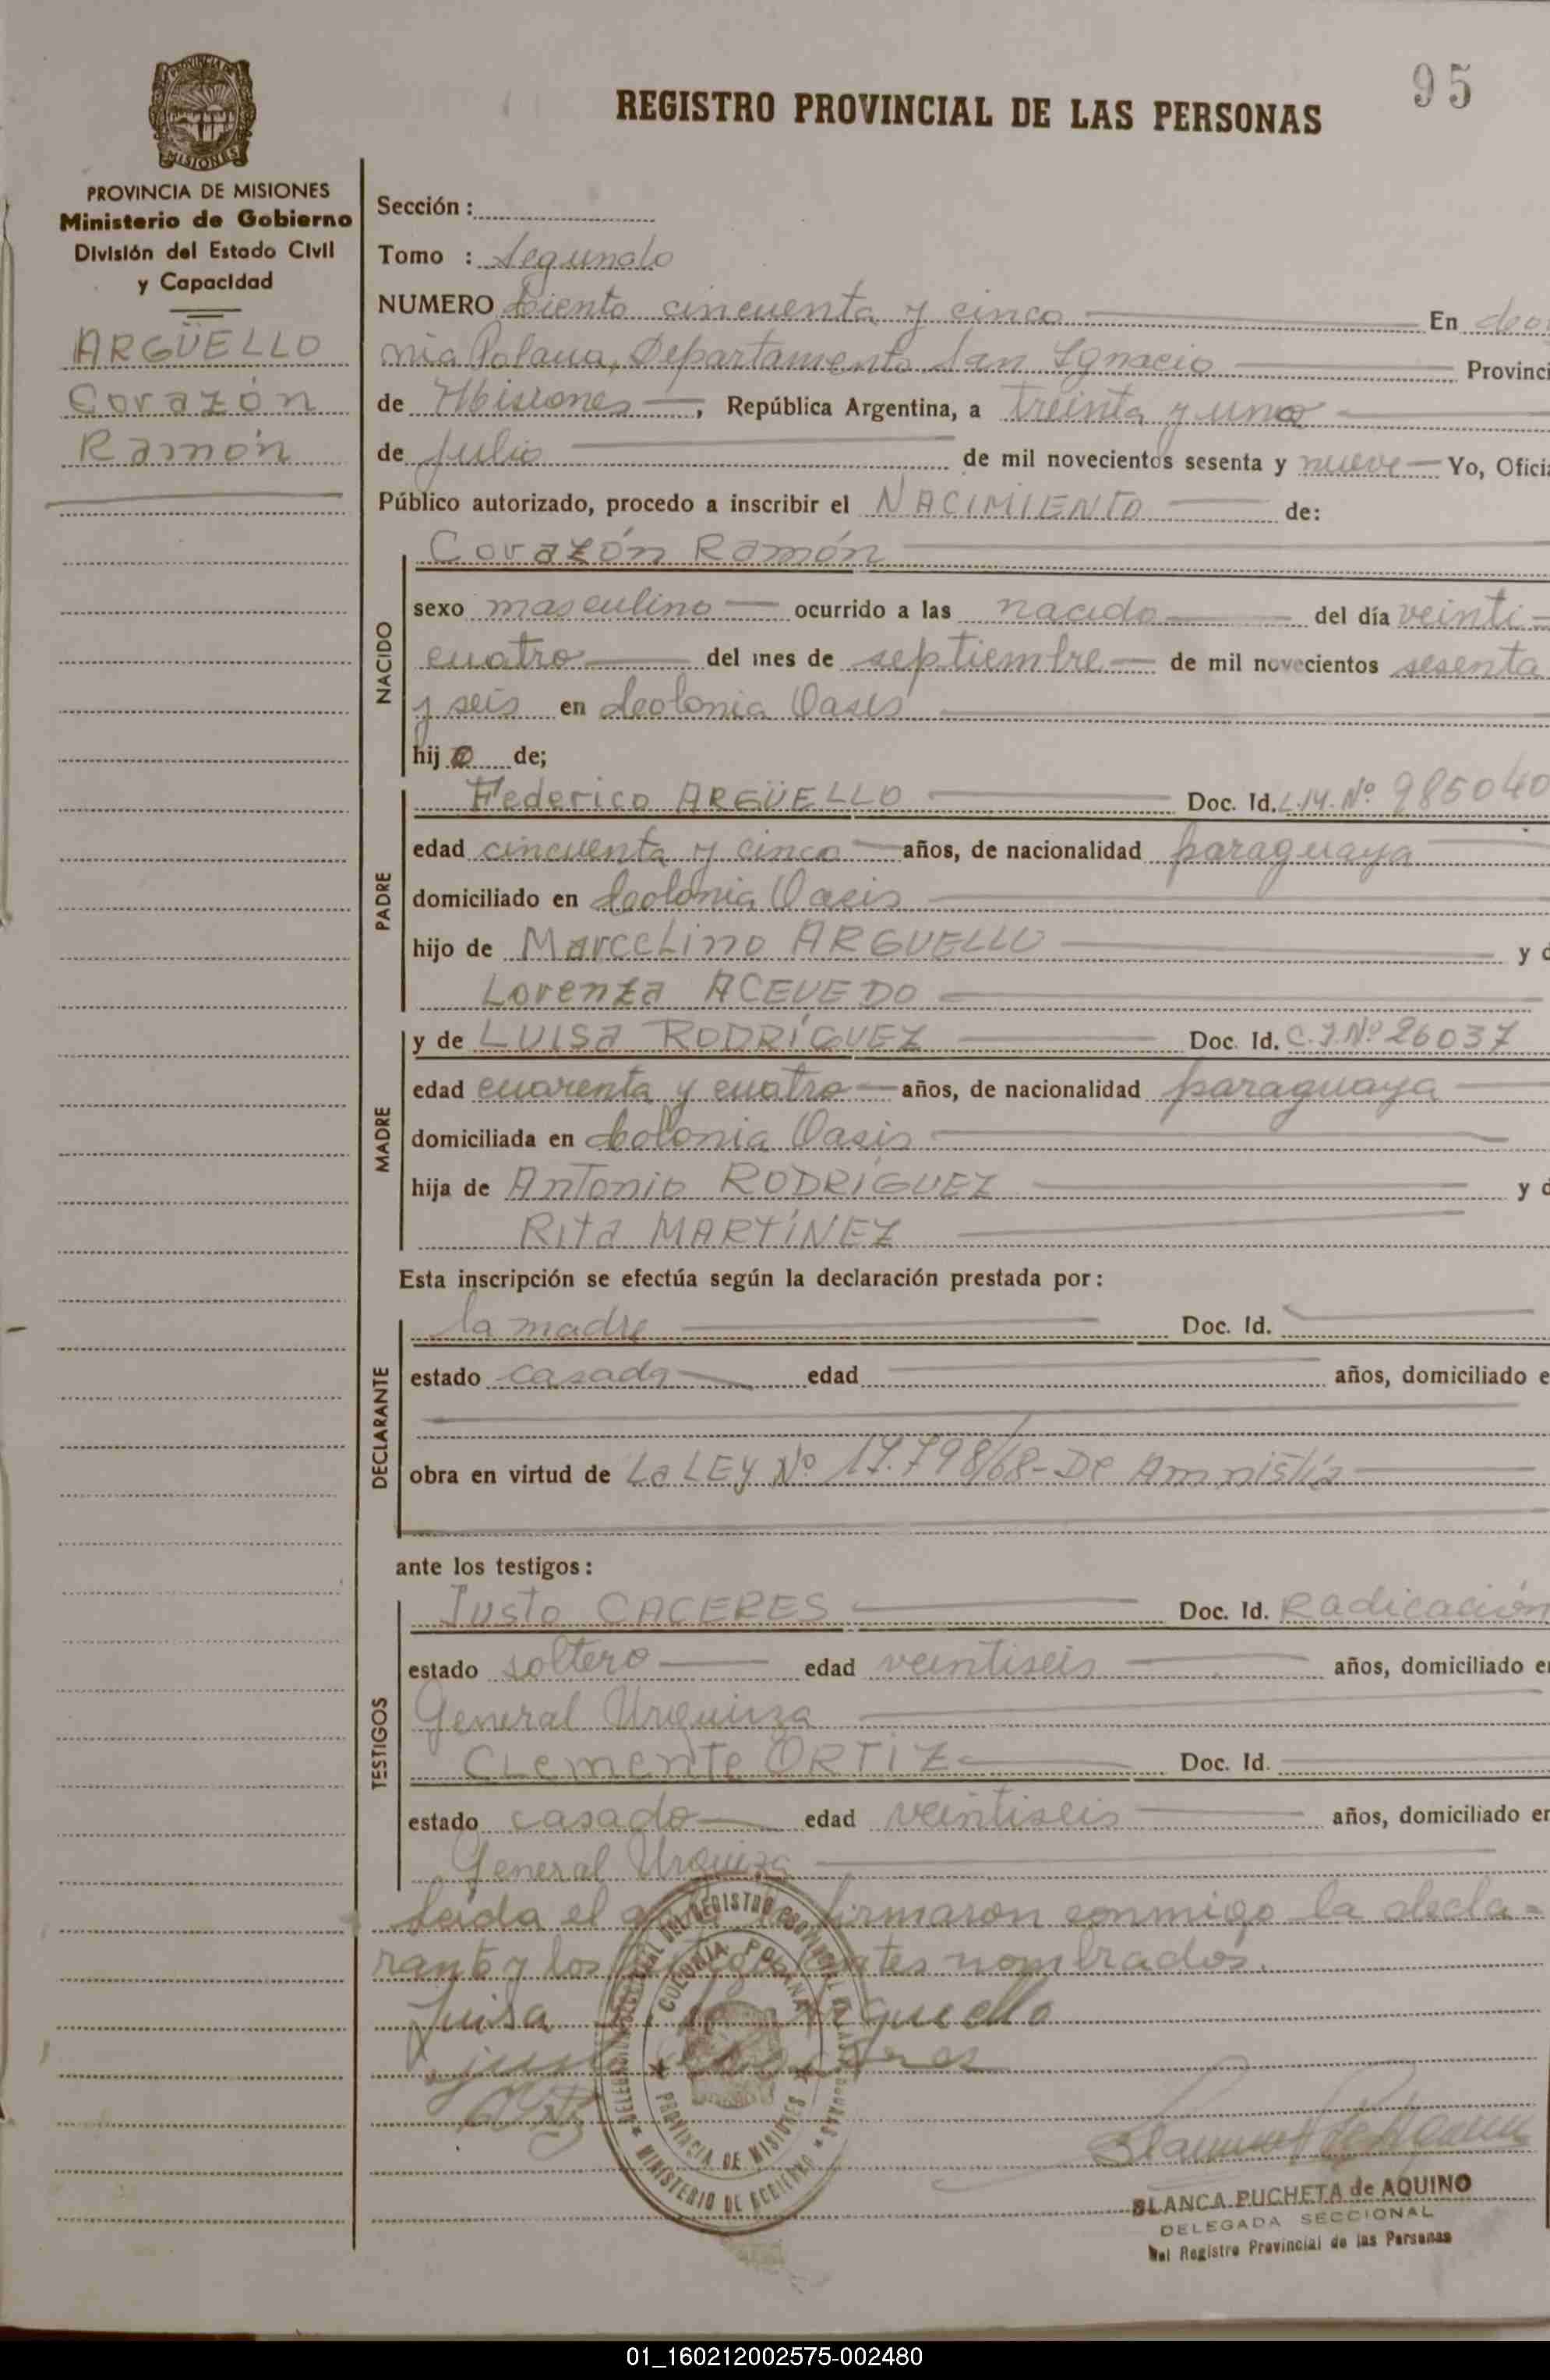 95
REGISTRO PROVINCIAL DE LAS PERSONAS
PROVINCIA DE MISIONES
Ministerio de Gobierno
División del Estado Civil
y Capacidad
ARGÜELLO
Corazón
Ramón
Sección :
Tomo : Segundo
NUMERO Ciento cincuenta y cinco En Colo
nia Polana, Departamento San Ignacio Provinci
de Misiones, República Argentina, a treinta y uno
de Julio de mil novecientos sesenta y nueve Yo, Ofici
Público autorizado, procedo a inscribir el NACIMIENTO de:
Corazón Ramón
NACIDO
sexo masculino ocurrido a las nacido del día veinti-
cuatro del mes de septiembre de mil novecientos sesenta
y seis en Colonia Oasis
hijo de;
PADRE
Federico ARGÜELLO Doc. Id. L.M. Nº 985040
edad cincuenta y cinco años, de nacionalidad paraguaya
domiciliado en Colonia Oasis
hijo de Marcelino ARGUELLO y d
Lorenza ACEVEDO
MADRE
y de LUISA RODRÍGUEZ Doc. Id. C.I. Nº 26037
edad cuarenta y cuatro años, de nacionalidad paraguaya
domiciliada en Colonia Oasis
hija de Antonio RODRÍGUEZ y d
Rita MARTÍNEZ
Esta inscripción se efectúa según la declaración prestada por:
DECLARANTE
la madre Doc. Id.
estado casada edad años, domiciliado e
obra en virtud de La LEY Nº 17.798/68- De Amnistía
ante los testigos:
TESTIGOS
Justo CACERES Doc. Id. Radicación
estado soltero edad veintiseis años, domiciliado en
General Urquiza
Clemente ORTIZ Doc. Id.
estado casado edad veintiseis años, domiciliado en
General Urquiza
Leída el firmaron conmigo la decla-
rante y los testigos antes nombrados.
Luisa Arguello
COLONIA POLANA
PROVINCIA DE MISIONES
MINISTERIO DE GOBIERNO
BLANCA PUCHETA de AQUINO
DELEGADA SECCIONAL
del Registro Provincial de las Personas
01_160212002575-002480